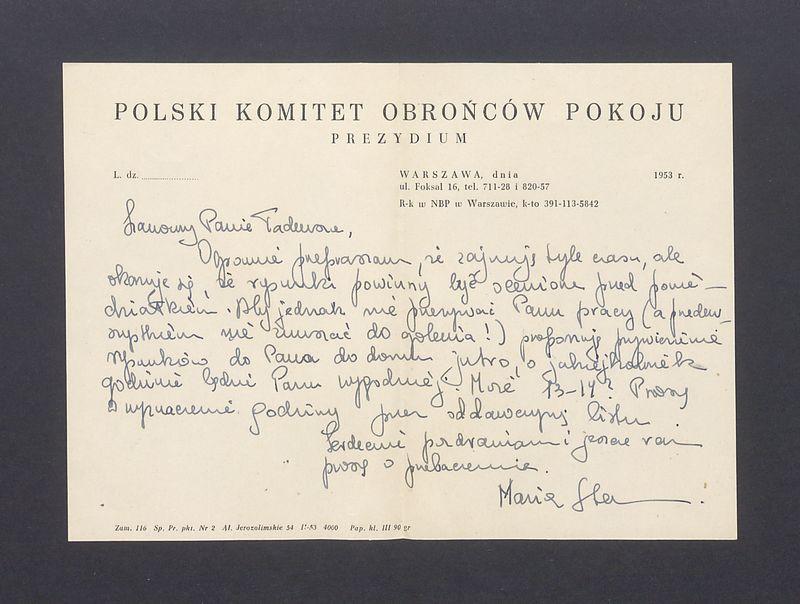 POLSKI KOMITET OBROŃCÓW POKOJU
PREZYDIUM
L. dz. ........................
WARSZAWA, dnia 1953 r.
ul. Foksal 16, tel. 711-28 i 820-57
R-k w NBP w Warszawie, k-to 391-113-5842
Szanowny Panie Tadeuszu,
Ogromnie przepraszam, że zajmuję tyle czasu, ale
okazuje się, że rysunki powinny być ocenione przed ponie-
działkiem. Aby jednak nie przerywać Panu pracy (a przede-
wszystkiem nie zmuszać do golenia!) proponuję przywiezienie
rysunków do Pana do domu jutro, o jakiejkolwiek
godzinie będzie Panu wygodniej. Może 13-14? Proszę
o wyznaczenie godziny przez oddawczynię listu.
Serdecznie pozdrawiam i jeszcze raz
proszę o przebaczenie.
Maria
Zam. 116 Sp. Pr. pkt. Nr 2 Al. Jerozolimskie 54 4000 Pap. kl. III 90 gr